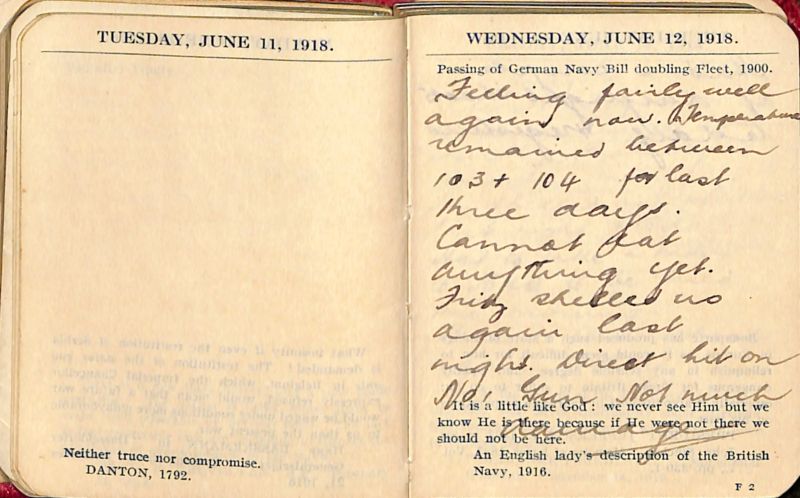 TUESDAY, JUNE 11, 1918.
Neither truce nor compromise.
DANTON, 1792.
WEDNESDAY, JUNE 12, 1918.
Passing of German Navy Bill doubling Fleet, 1900.
Feeling fairly well
again now. Temperature
remained between
103 + 104 for last
three days.
Cannot eat
anything yet.
Fritz shelled us
again last
night. Direct hit on
No 1 Gun. Not much
damage
It is a little like God: we never see Him but we
know He is there because if He were not there we
should not be here.
An English lady's description of the British
Navy, 1916.
F 2